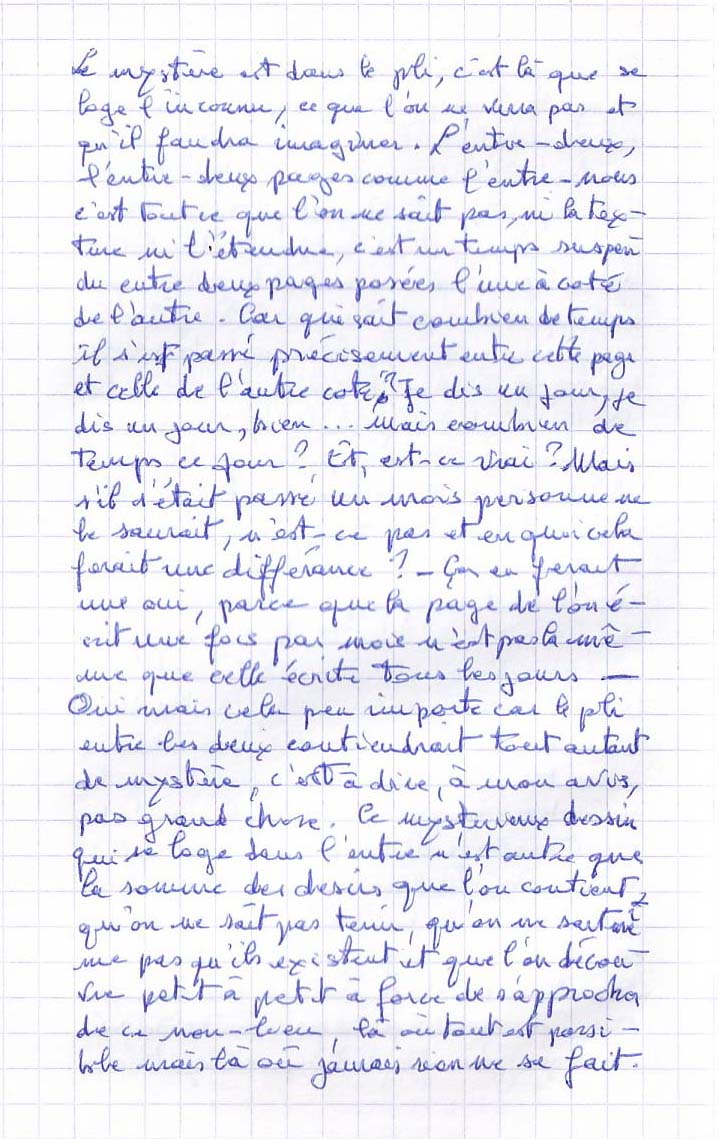 Le mystère est dans le pli, c'est là que se
loge l'inconnu, ce que l'on ne verra pas et
qu'il faudra imaginer. L'entre-deux,
l'entre-deux pages comme l'entre-nous
c'est tout ce que l'on ne sait pas, ni la tex-
ture ni l'étendue, c'est un temps suspen
du entre deux pages posées l'une à coté
de l'autre. Car qui sait combien de temps
il s'est passé précisément entre cette page
et celle de l'autre coté? Je dis un jour, je
dis un jour, bien... mais combien de
temps ce jour? Et, est-ce vrai? Mais
s'il s'était passé un mois personne ne
le saurait, n'est-ce pas et en quoi cela
ferait une différance? - Ça en ferait
une oui, parce que la page de l'on é-
crit une fois par mois n'est pas la mê-
me que celle écrite tous les jours —
Oui mais cela peu importe car le pli
entre les deux contiendrait tout autant
de mystère, c'est à dire, à mon avis,
pas grand chose. Ce mystérieux dessin
qui se loge dans l'entre n'est autre que
la somme des desirs que l'on contient,
qu'on ne sait pas tenir, qu'on ne sait mê
me pas qu'ils existent et que l'on décou-
vre petit à petit à force de s'approcher
de ce non-lieu, là où tout est possi-
ble mais là où jamais rien ne se fait.